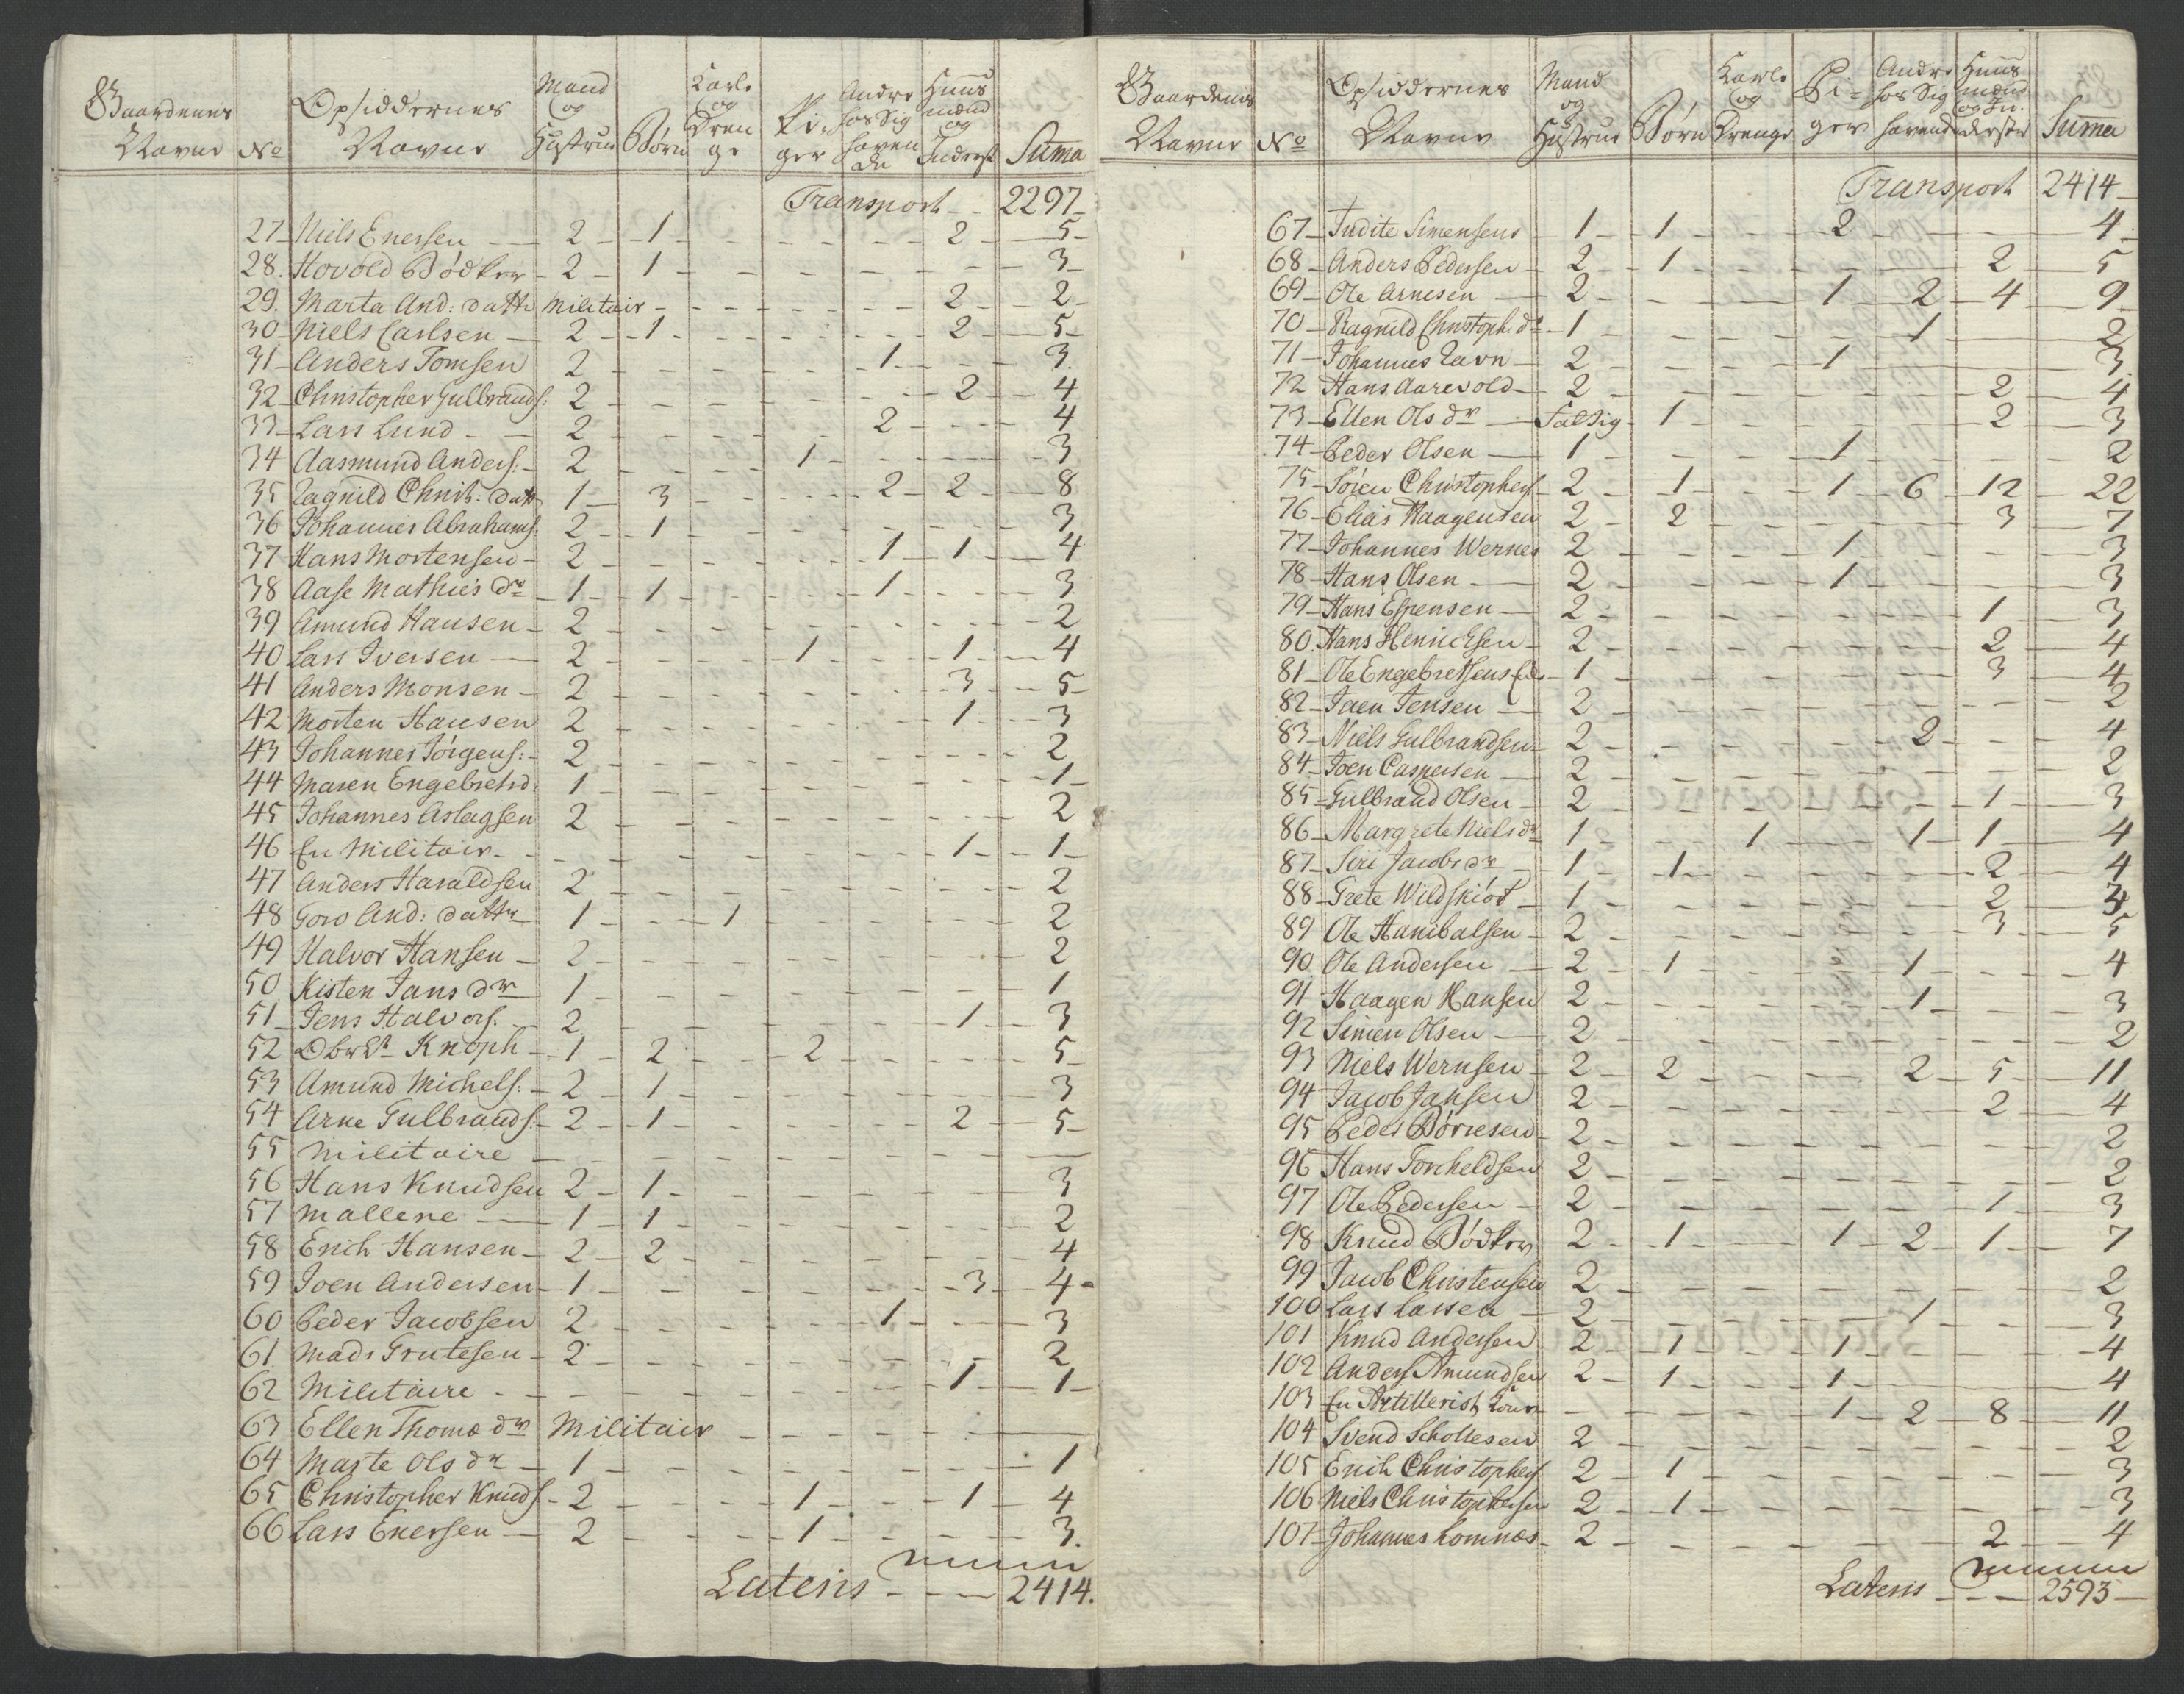 Gaardenes Navne No Opsiddernes Navne Mand og Hustrue Børn Karle og Drenge Piger Andre hos Sig havende Huusmænd og Inderst Suma
Transport - - 2297
27 Niels Enersen 2 - 1 - - - - 2 - 5
28. Hovold Bödker - 2 - 1 - - - - - 3
29. Marta And: datter Militair - - - - - 2 - 2
30 Niels Carlsen - 2 - 1 - - - - 2 - 5
31 Anders Tomsen 2 - - - - 1 - - 3
32 Christopher Gulbrands: 2 - - - - - 2 - 4
33 Lars Lund - 2 - - - - 2 - - 4
34 Aasmund Anders: - 2 - - - 1 - - - 3
35 Ragnild Christ: datt 1 - 3 - - - 2 - 2 - 8
36 Johannes Abrahams: 2 - 1 - - - - - 3
37 Hans Mortensen - 2 - - - - 1 - 1 - 4
38 Aase Mathies dr - 1 - 1 - - - 1 - - 3
39 Amund Hansen - 2 - - - - - - 2
40 Lars Iversen - 2 - - - 1 - - 1 - 4
41 Anders Monsen - 2 - - - - - 3 - 5
42 Morten Hansen 2 - - - - - 1 - 3
43 Johannes Jörgens: - 2 - - - - - - 2
44 Maren Engebretsd: 1 - - - - - - 1
45 Johannes Aslagsen 2 - - - - - - 2
46 En Militair - - - - - - 1 - 1
47 Anders Haraldsen 2 - - - - - - 2
48 Goro And: datter 1 - - 1 - - - - 2
49 Halvor Hansen - 2 - - - - - - 2
50 Kisten Jans dr 1 - - - - - - 1
51 Jens Halvors: - 2 - - - - - 1 - 3
52 Obr Lt Knoph - 1 - 2 - - 2 - - - 5
53 Amund Michels: - 2 - 1 - - - - - 3
54 Arne Gulbrands: - 2 - 1 - - - - 2 - 5
55 Militaire - - - - - - -
56 Hans Knudsen 2 - 1 - - - - - 3
57 Mallene - 1 - 1 - - - - - 2
58 Erich Hansen - 2 - 2 - - - - - 4
59 Joen Andersen - 1 - - - - - 3 - 4
60 Peder Jacobsen 2 - - - - 1 - - 3
61 Mads Grutesen - 2 - - - - - - 2
62 Militaire - - - - - - 1 - 1
63 Ellen Thomæ dr Militair - - - - -
64 Marte Ols dr - 1 - - - - - - 1
65 Christopher Knuds - 2 - - - 1 - - 1 - 4
66 Lars Enersen - 2 - - - 1 - - - 3.
Lateris - - - 2414.
Gaardenes Navne No Opsiddernes Navne Mand og Hustrue Børn Karle og Drenge Piger Andre hos Sig havende Huusmænd og Inderster Suma
Transport 2414
67 Judite Simensens 1 - 1 - - 2 - - - 4
68 Anders Pedersen - 2 - 1 - - - - 2 - 5
69 Ole Arnesen - 2 - - - 1 - 2 - 4 - 9
70 Ragnild Christoph: dr - 1 - - - - 1 - - 2
71 Johannes Ravn - 2 - - - 1 - - - 3
72 Hans Aarevold - 2 - - - - - 2 - 4
73 Ellen Ols dr - Fattig - 1 - - - - 2 - 3
74 Peder Olsen - 1 - - - 1 - - - 2
75 Sören Christophers - 2 - 1 - - 1 - 6 - 12 - 22
76 Elias Haagensen 2 - 2 - - - - 3 - 7
77 Johannes Wernes 2 - - - 1 - - - 3
78 Hans Olsen - 2 - - - 1 - - - 3
79 Hans Espensen - 2 - - - - - 1 - 3
80. Hans Henrichsen - 2 - - - - - 2 - 4
81 Ole Engebretsens - 1 - - - - - 3 - 4
82 Joen Jensen - 2 - - - - - - 2
83 Niels Gulbrandsen - 2 - - - - 2 - - 4
84 Joen Caspersen - 2 - - - - - - 2
85 Gulbrand Olsen - 2 - - - - - 1 - 3
86 Margrete Niels dr 1 - - 1 - - 1 - 1 - 4
87 Siri Jacobs dr - 1 - 1 - - - - 2 - 4
88 Grete Wildskiöt - 1 - - - - - 2 - 3
89 Ole Hanibalsen - 2 - - - - - 3 - 5
90 Ole Andersen - 2 - 1 - - - 1 - - 4
91 Haagen Hansen 2 - - - - 1 - - 3
92 Simen Olsen - 2 - - - - - - 2
93 Niels Wernsen - 2 - 2 - - - 2 - 5 - 11
94 Jacob Jansen 2 - - - - - 2 - 4
95 Peder Börresen - 2 - - - - - - 2
96 Hans Torcheldsen 2 - - - - - - 2
97 Ole Pedersen - 2 - - - - - 1 - 3
98 Knud Bödker 2 - 1 - - 1 - 2 - 1 - 7
99 Jacob Christensen 2 - - - - - - 2
100 Lars Larsen - 2 - - - - 1 - - 3
101 Knud Andersen 2 - 1 - - 1 - - - 4
102 Anders Amundsen 2 - 1 - - 1 - - - 4
103 En Artillerist - - - - 1 - 2 - 8 - 11
104 Svend Scholtesen 2 - - - - - - 2
105 Erich Christophers 2 - 1 - - - - - 3
106 Niels Christophersen 2 - 1 - - - - - 3
107 Johannes Lomnæs - 2 - - - - - 2 - 4
Lateris - - - 2593